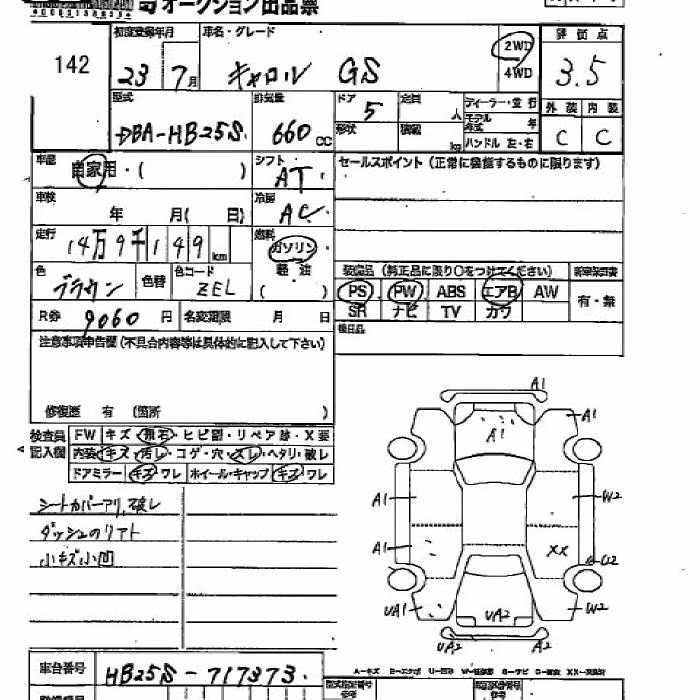 オークション出品票
142
初度登録年月
23年 7月
車名・グレード
キャロル GS
2WD
4WD
評価点
3.5
型式
DBA-HB25S
排気量
660cc
ドア
5
定員
人
形状
積載
kg
ディーラー・並行
モデル年式 年
ハンドル 左・右
外装 内装
C C
車歴
自家用・( )
シフト
AT
セールスポイント(正常に機能するものに限ります)
車検
年 月( 日)
冷房
AC
走行
14万9千149km
燃料
ガソリン
軽油
( )
色
ブラウン
色替
色コード
ZEL
装備品 (純正品に限り○をつけてください)
PS PW ABS エアB AW
SR ナビ TV カワ
有・無
R券 9060円
名変期限 月 日
後日品
注意事項申告欄(不具合内容等は具体的に記入して下さい)
修復歴 有 (箇所 )
検査員記入欄
FW キズ・飛石・ヒビ割・リペア跡・X要
内装 キズ・汚レ・コゲ・穴・スレ・ヘタリ・破レ
ドアミラー キズ・ワレ ホイール・キャップ キズ・ワレ
シートカバーアリ,破レ
ダッシュのリアト
小キズ小凹
A1
A1
A1
A1
W2
A1
XX
U2
UA1
UA2
W2
UA2
A2
車台番号 HB25S-717373
A-キズ